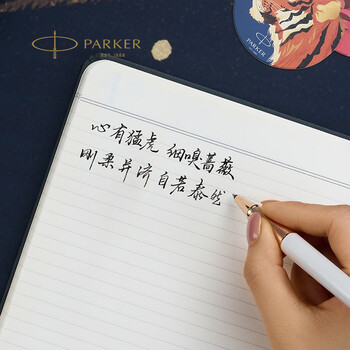 PARKER
心有猛虎 细嗅蔷薇
刚柔并济 自若泰然
PARKER